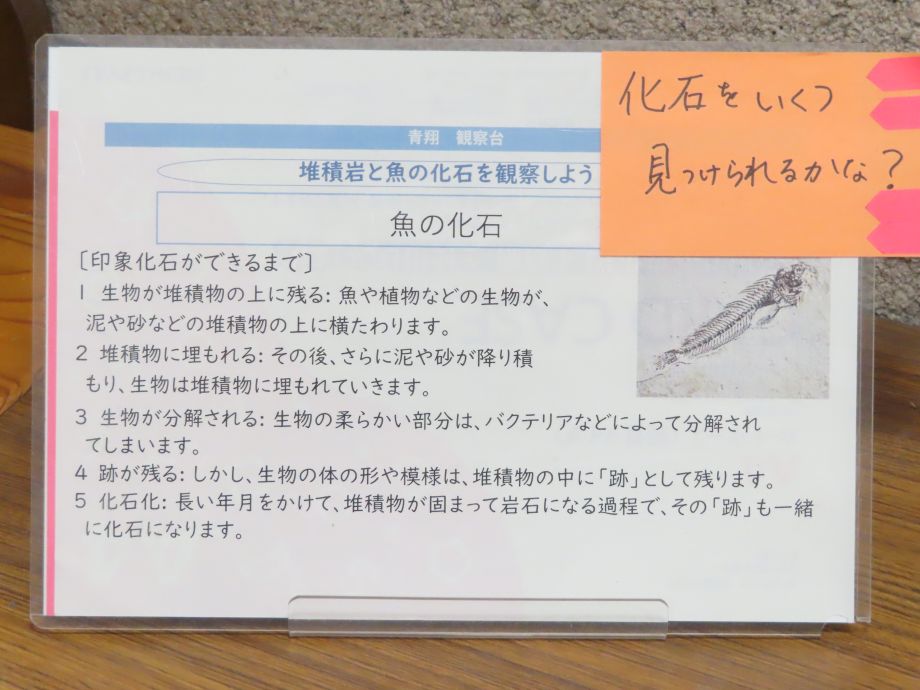 青翔　観察台
堆積岩と魚の化石を観察しよう
魚の化石
化石をいくつ
見つけられるかな？
［印象化石ができるまで］
1 生物が堆積物の上に残る: 魚や植物などの生物が、
泥や砂などの堆積物の上に横たわります。
2 堆積物に埋もれる: その後、さらに泥や砂が降り積
もり、生物は堆積物に埋もれていきます。
3 生物が分解される: 生物の柔らかい部分は、バクテリアなどによって分解され
てしまいます。
4 跡が残る: しかし、生物の体の形や模様は、堆積物の中に「跡」として残ります。
5 化石化: 長い年月をかけて、堆積物が固まって岩石になる過程で、その「跡」も一緒
に化石になります。